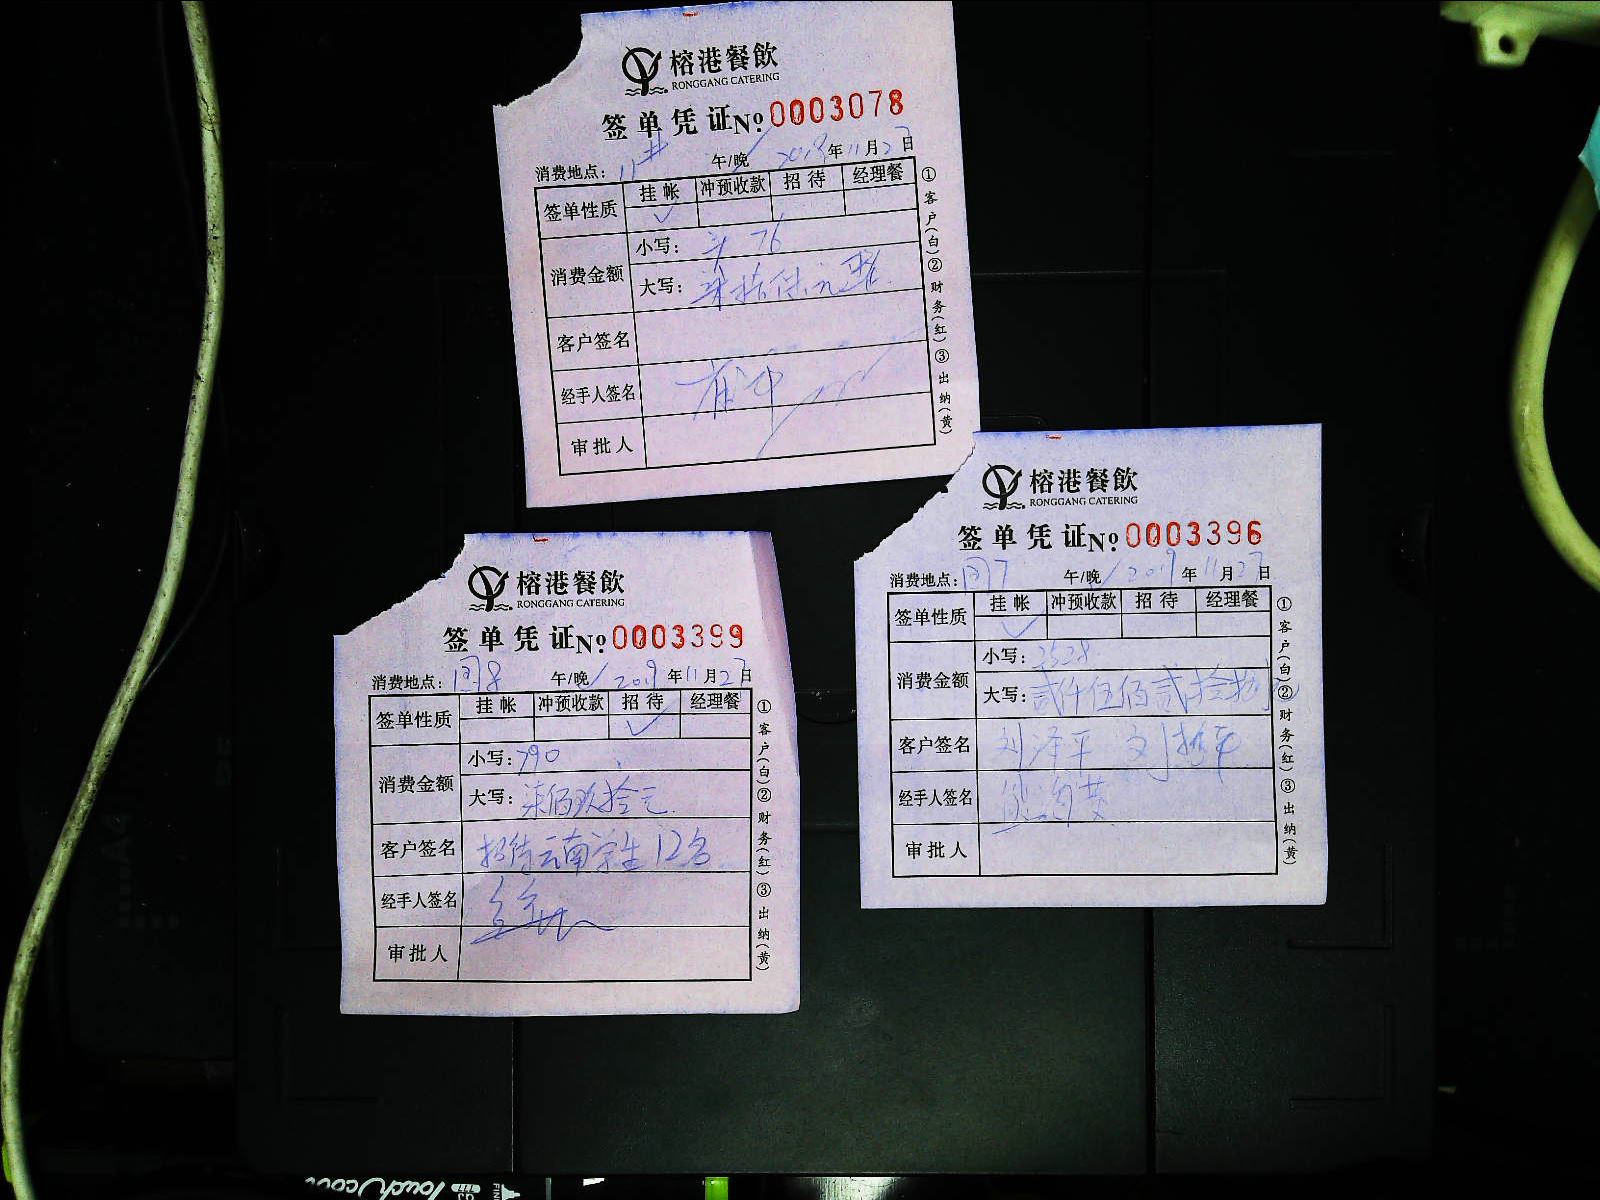 榕港餐飲
RONGGANG CATERING
签单凭证 № 0003078
消费地点： 11# 午/晚 2019年11月27日
签单性质 挂帐 冲预收款 招待 经理餐
✓
消费金额 小写： 76
大写： 柒拾陆元整
客户签名
经手人签名
审批人
①客户(白)②财务(红)③出纳(黄)
榕港餐飲
RONGGANG CATERING
签单凭证 № 0003396
消费地点： 团7 午/晚 2019年11月27日
签单性质 挂帐 冲预收款 招待 经理餐
✓
消费金额 小写： 2528
大写： 贰仟伍佰贰拾捌
客户签名 刘泽平
经手人签名
审批人
①客户(白)②财务(红)③出纳(黄)
榕港餐飲
RONGGANG CATERING
签单凭证 № 0003399
消费地点： 团8 午/晚 2019年11月27日
签单性质 挂帐 冲预收款 招待 经理餐
✓
消费金额 小写： 790
大写： 柒佰玖拾元
客户签名 招待云南学生12名
经手人签名
审批人
①客户(白)②财务(红)③出纳(黄)